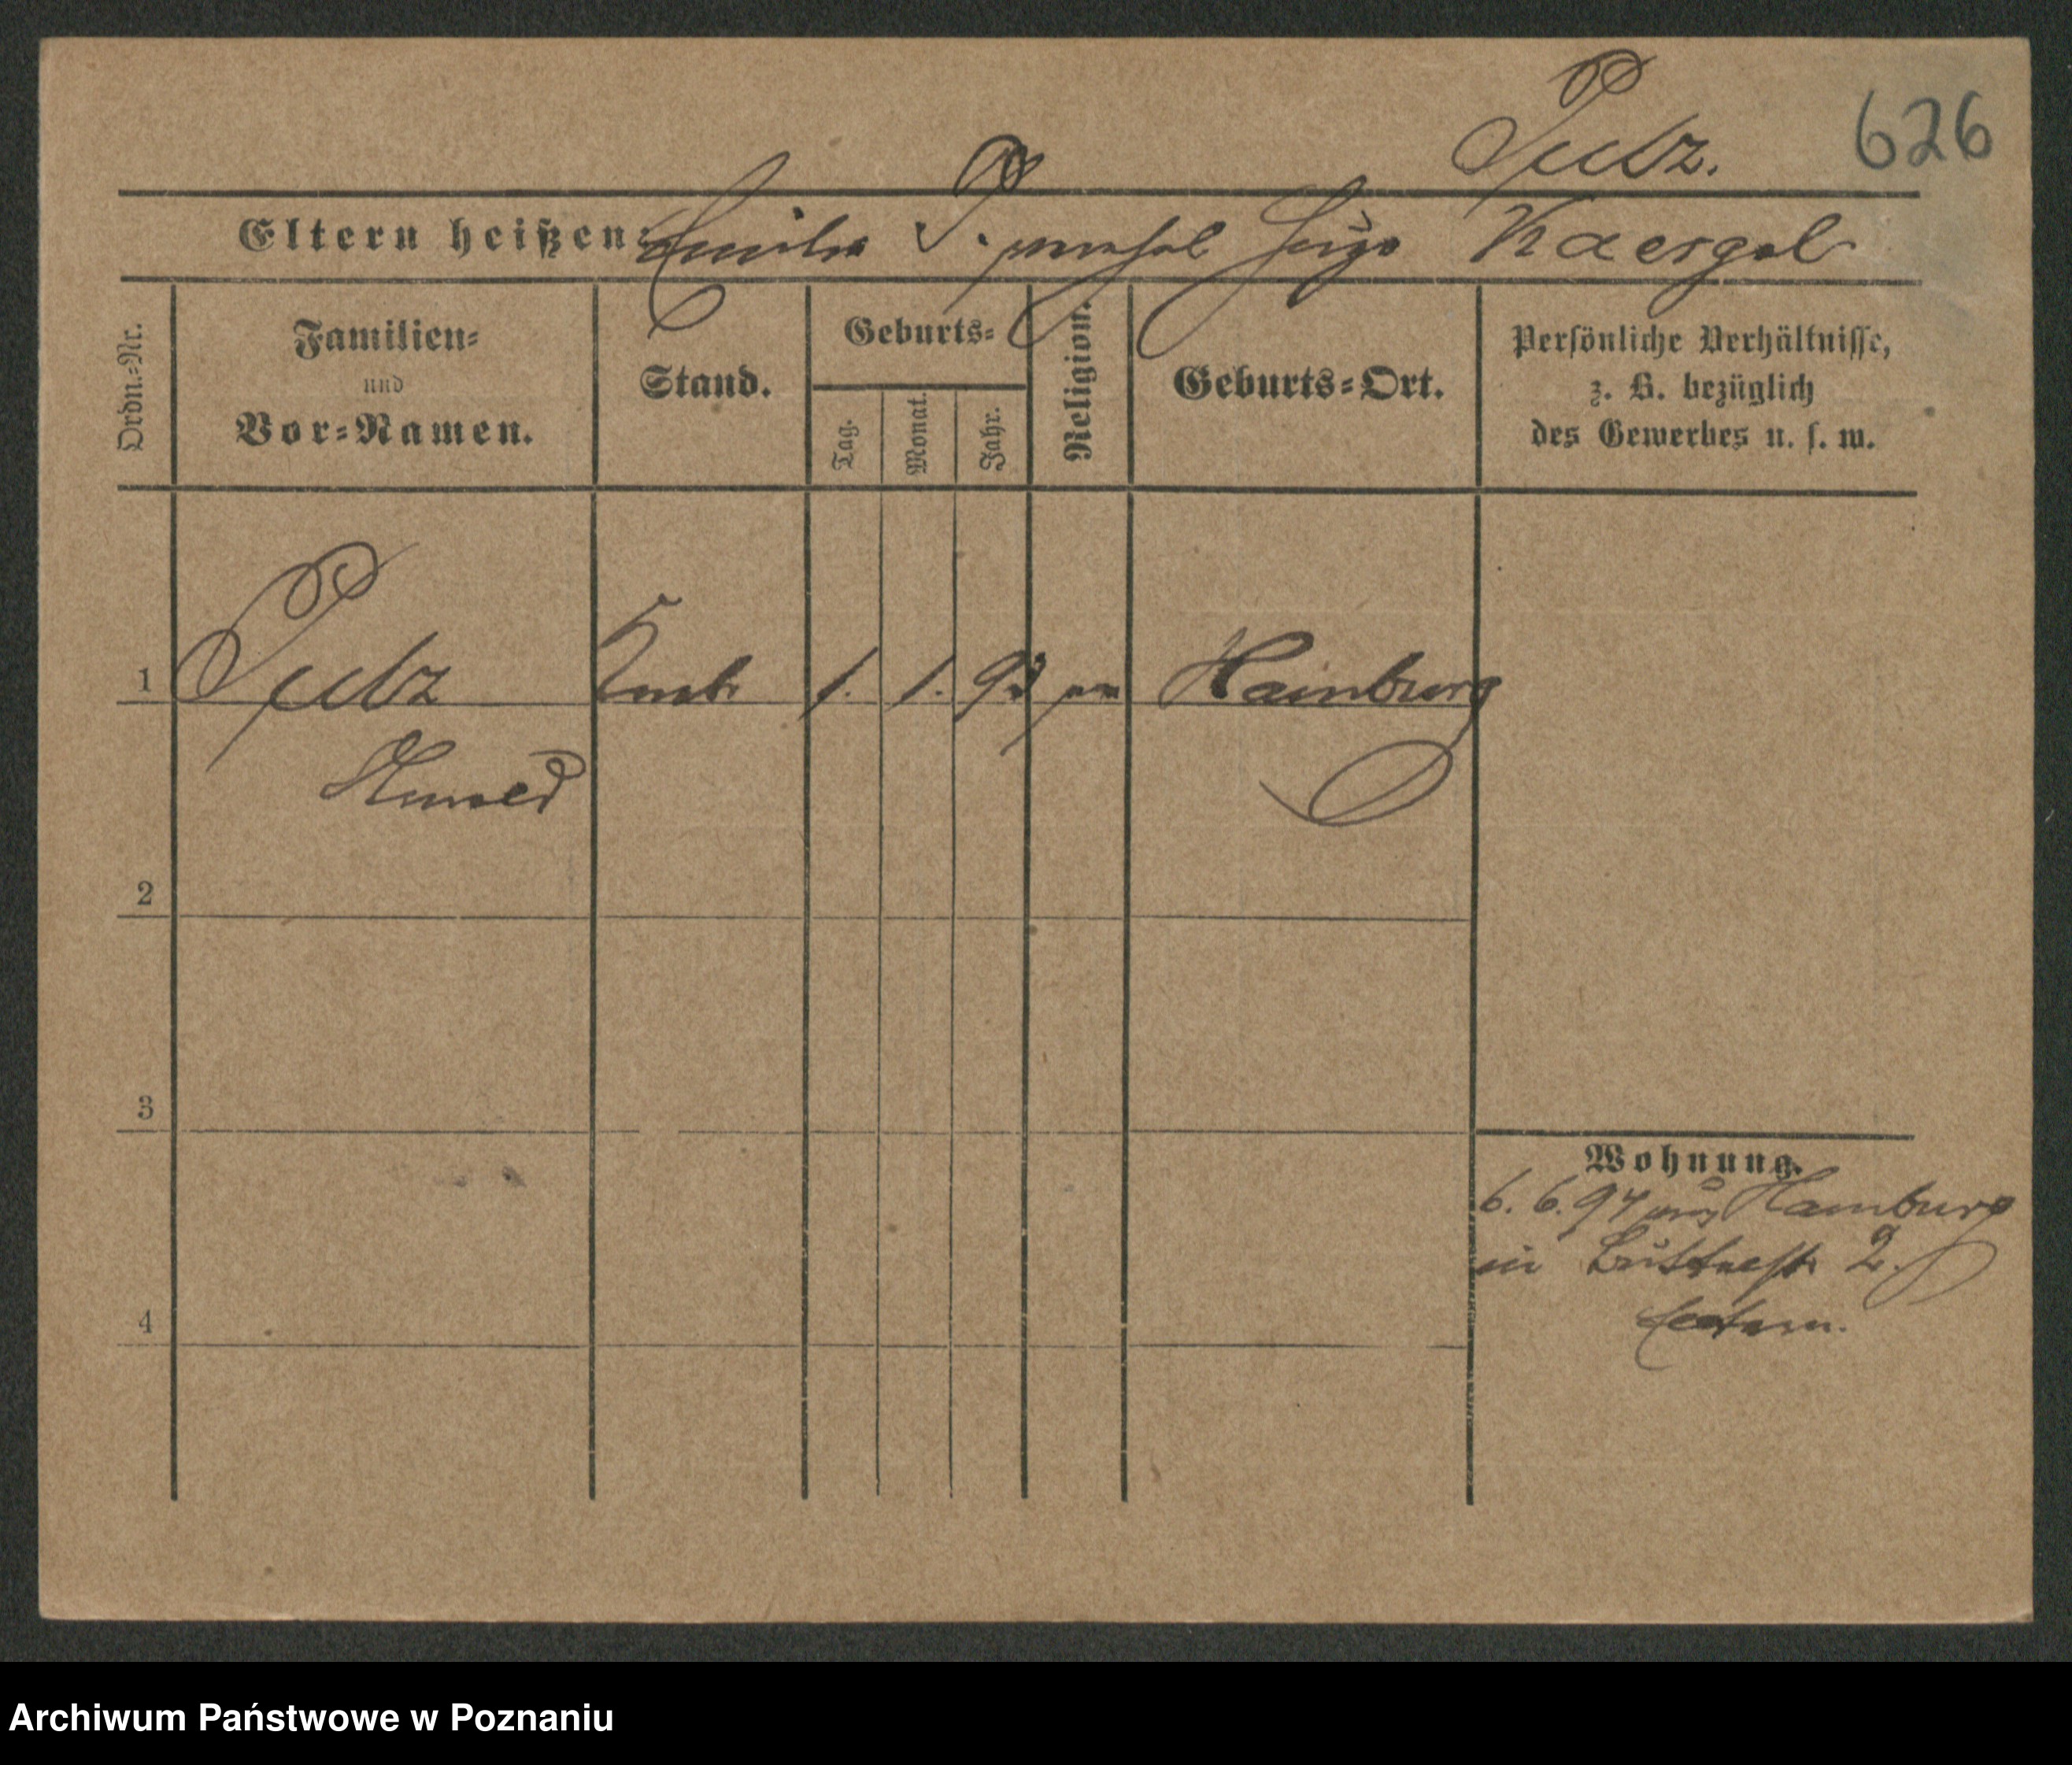 Putz.
626
Eltern heißen: Emilie P. Kaergel
Ordn.-Nr.
Familien-
und
Vor-Namen.
Stand.
Geburts-
Tag.
Monat.
Jahr.
Religion.
Geburts-Ort.
Persönliche Verhältnisse,
z. B. bezüglich
des Gewerbes u. s. w.
1 Putz 1. 1. 93 Hamburg
2
3
4
Wohnung.
6. 6. 94 aus Hamburg
in 2.
Archiwum Państwowe w Poznaniu